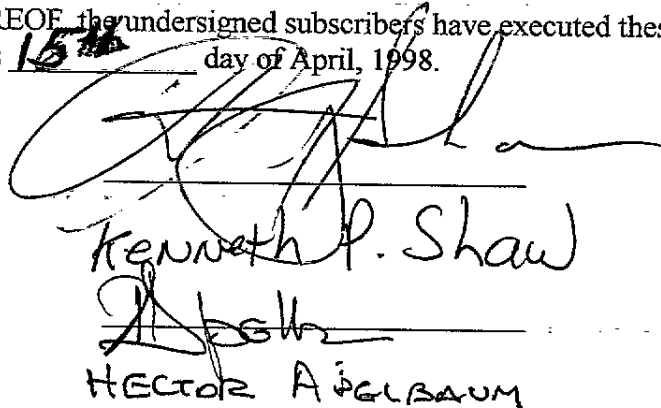 REOF, the undersigned subscribers have executed thes
15th day of April, 1998.
Kenneth P. Shaw
HECTOR APELBAUM